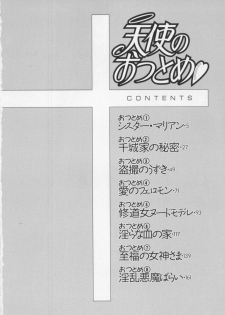 天使の
おつとめ♥
CONTENTS
おつとめ①
シスター・マリアン…5
おつとめ②
千城家の秘密…27
おつとめ③
盗撮のうずき…49
おつとめ④
愛のフェロモン…71
おつとめ⑤
修道女ヌードモデル…93
おつとめ⑥
淫らな血の家…117
おつとめ⑦
至福の女神さま…139
おつとめ⑧
淫乱悪魔ばらい…161